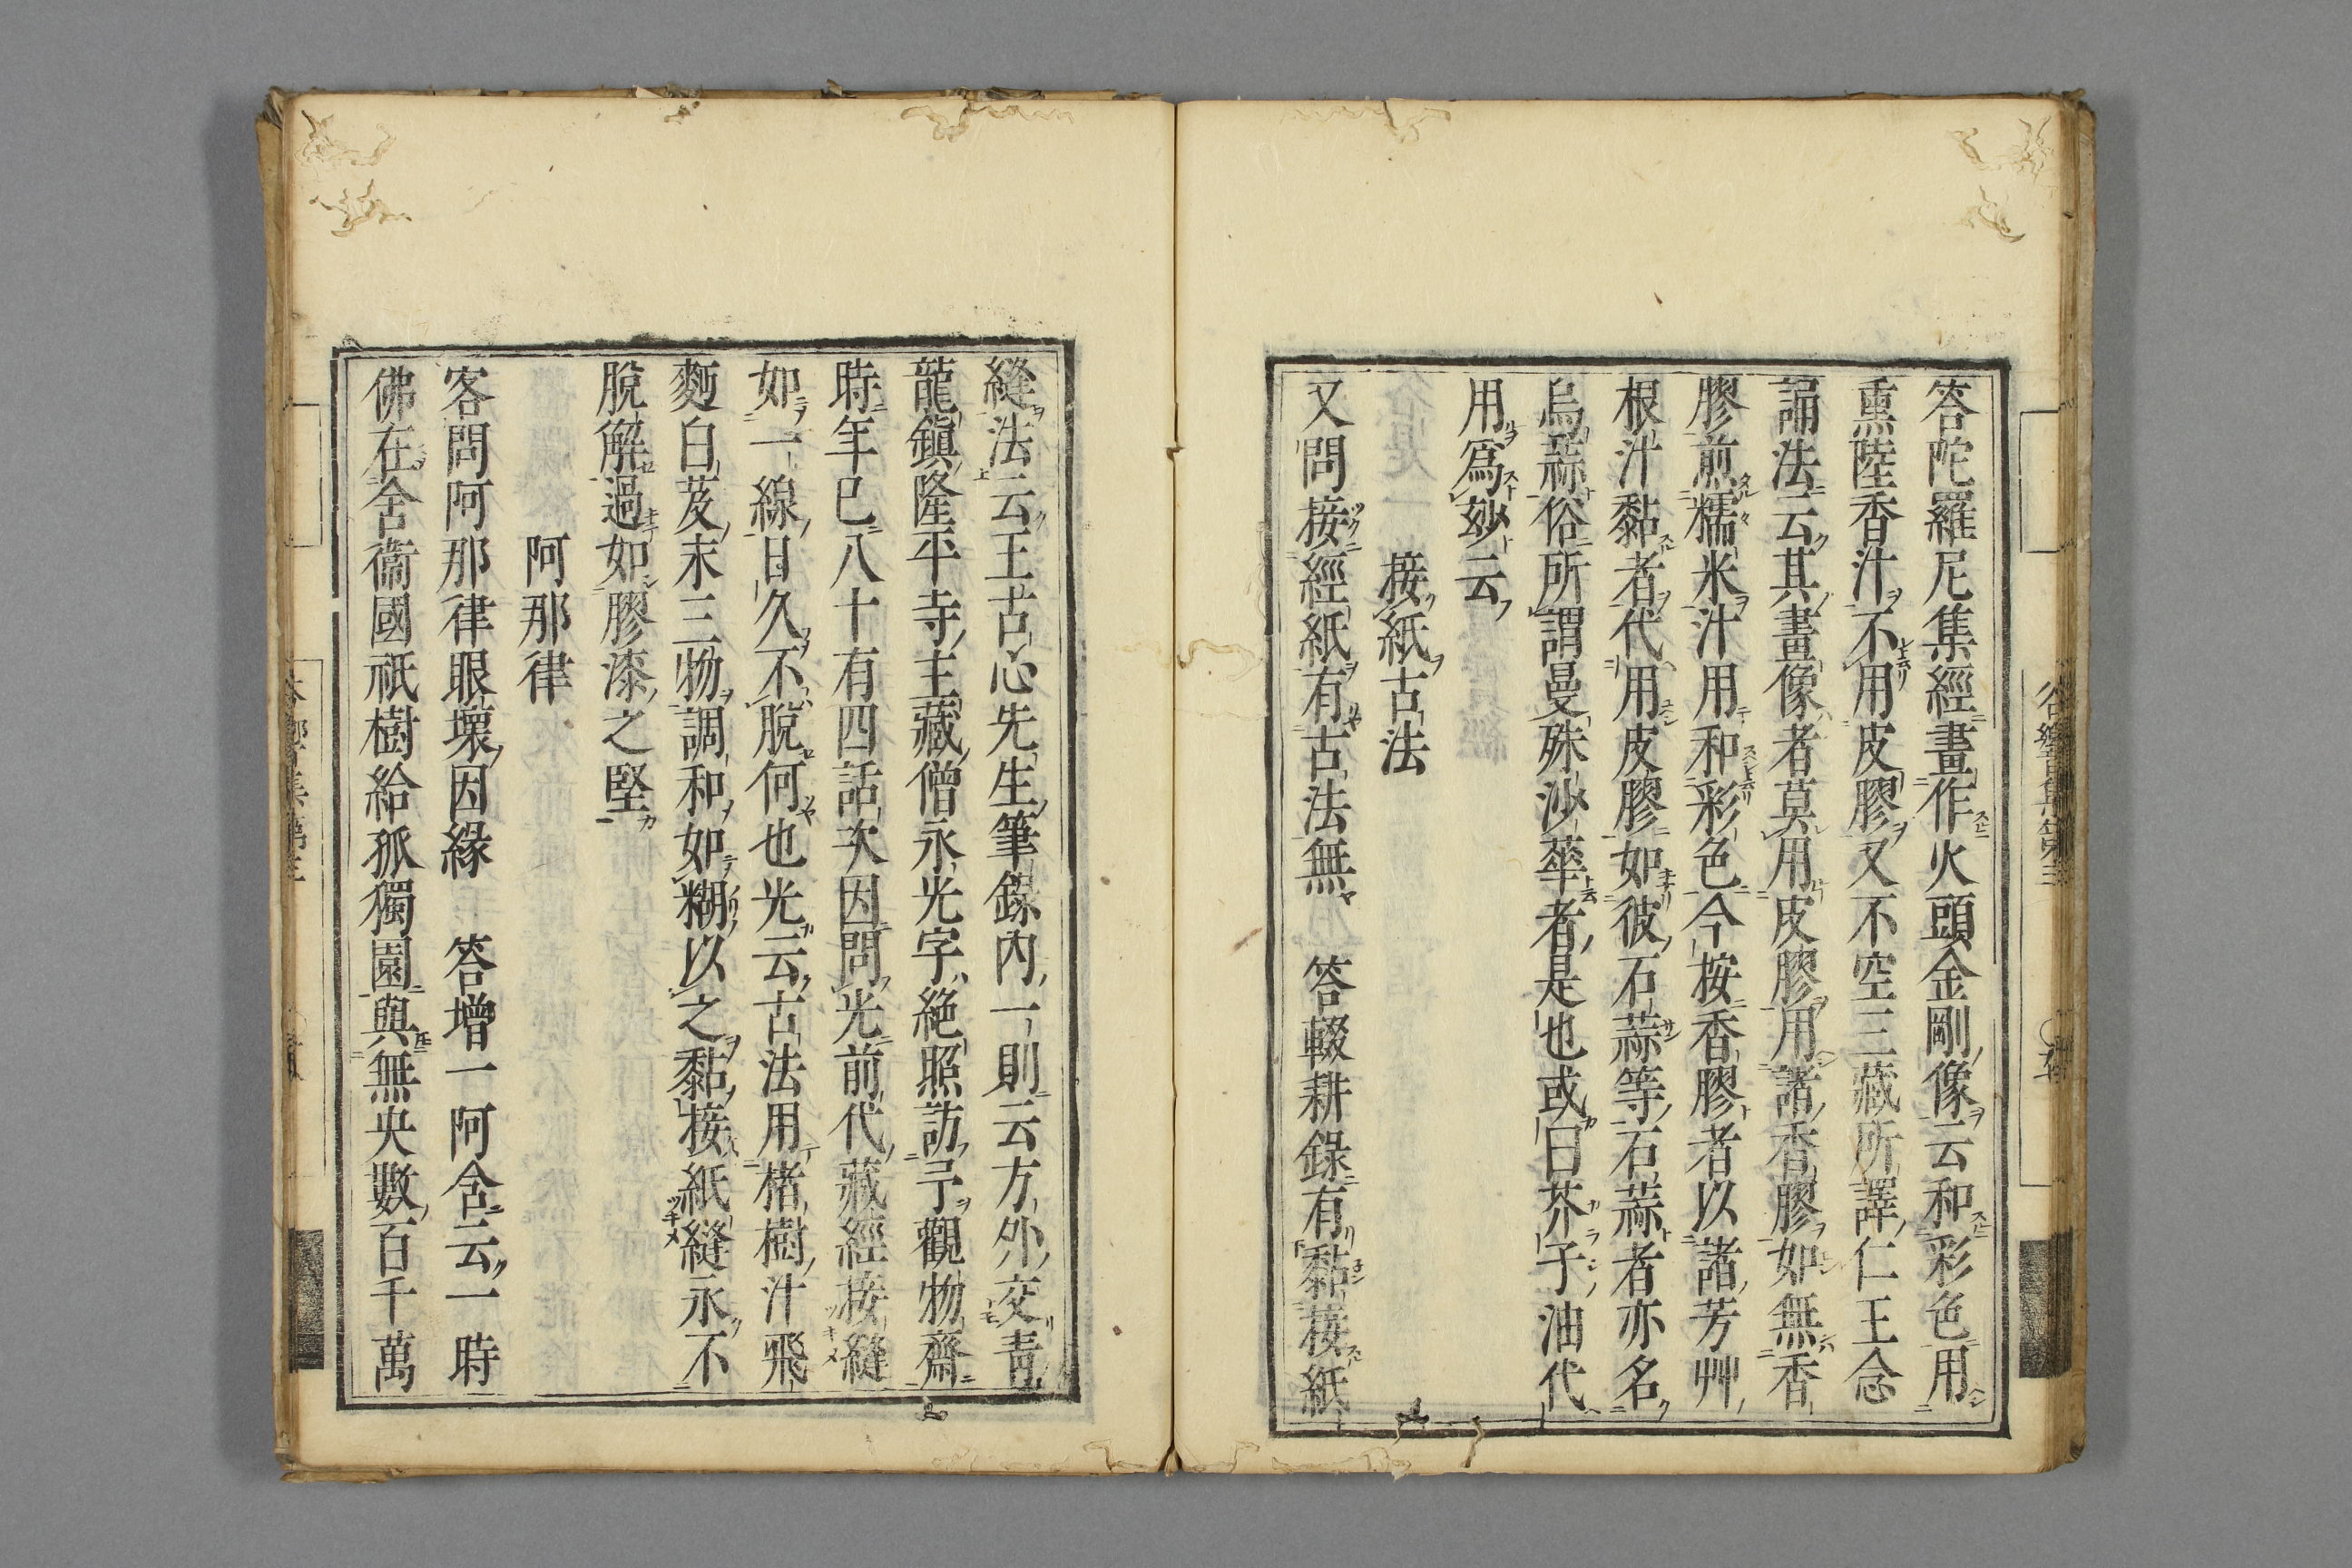 答陀羅尼集經畫作火頭金剛像云和彩色用
熏陸香汁不用皮膠又不空三藏所譯仁王念
誦法云其畫像者莫用皮膠用諸香膠如無香
膠煎糯米汁用和彩色今按香膠者以諸芳艸
根汁黏者代用皮膠如彼石蒜等石蒜者亦名
烏蒜俗所謂曼殊沙華者是也或曰芥子油代
用爲玅云
接紙古法
又問接經紙有古法無 答輟耕錄有黏接紙
縫法云王古心先生筆錄內一則云方外交青
龍鎭隆平寺主藏僧永光字絶照訪予觀物齋
時年已八十有四話次因問光前代藏經接縫
如一線日久不脫何也光云古法用楮樹汁飛
麪白芨末三物調和如糊以之黏接紙縫永不
脫解過如膠漆之堅
阿那律
客問阿那律眼壞因緣 答增一阿含云一時
佛在舍衞國祇樹給孤獨園與無央數百千萬